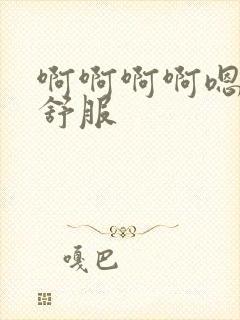 啊啊啊啊嗯
舒服
嘎巴